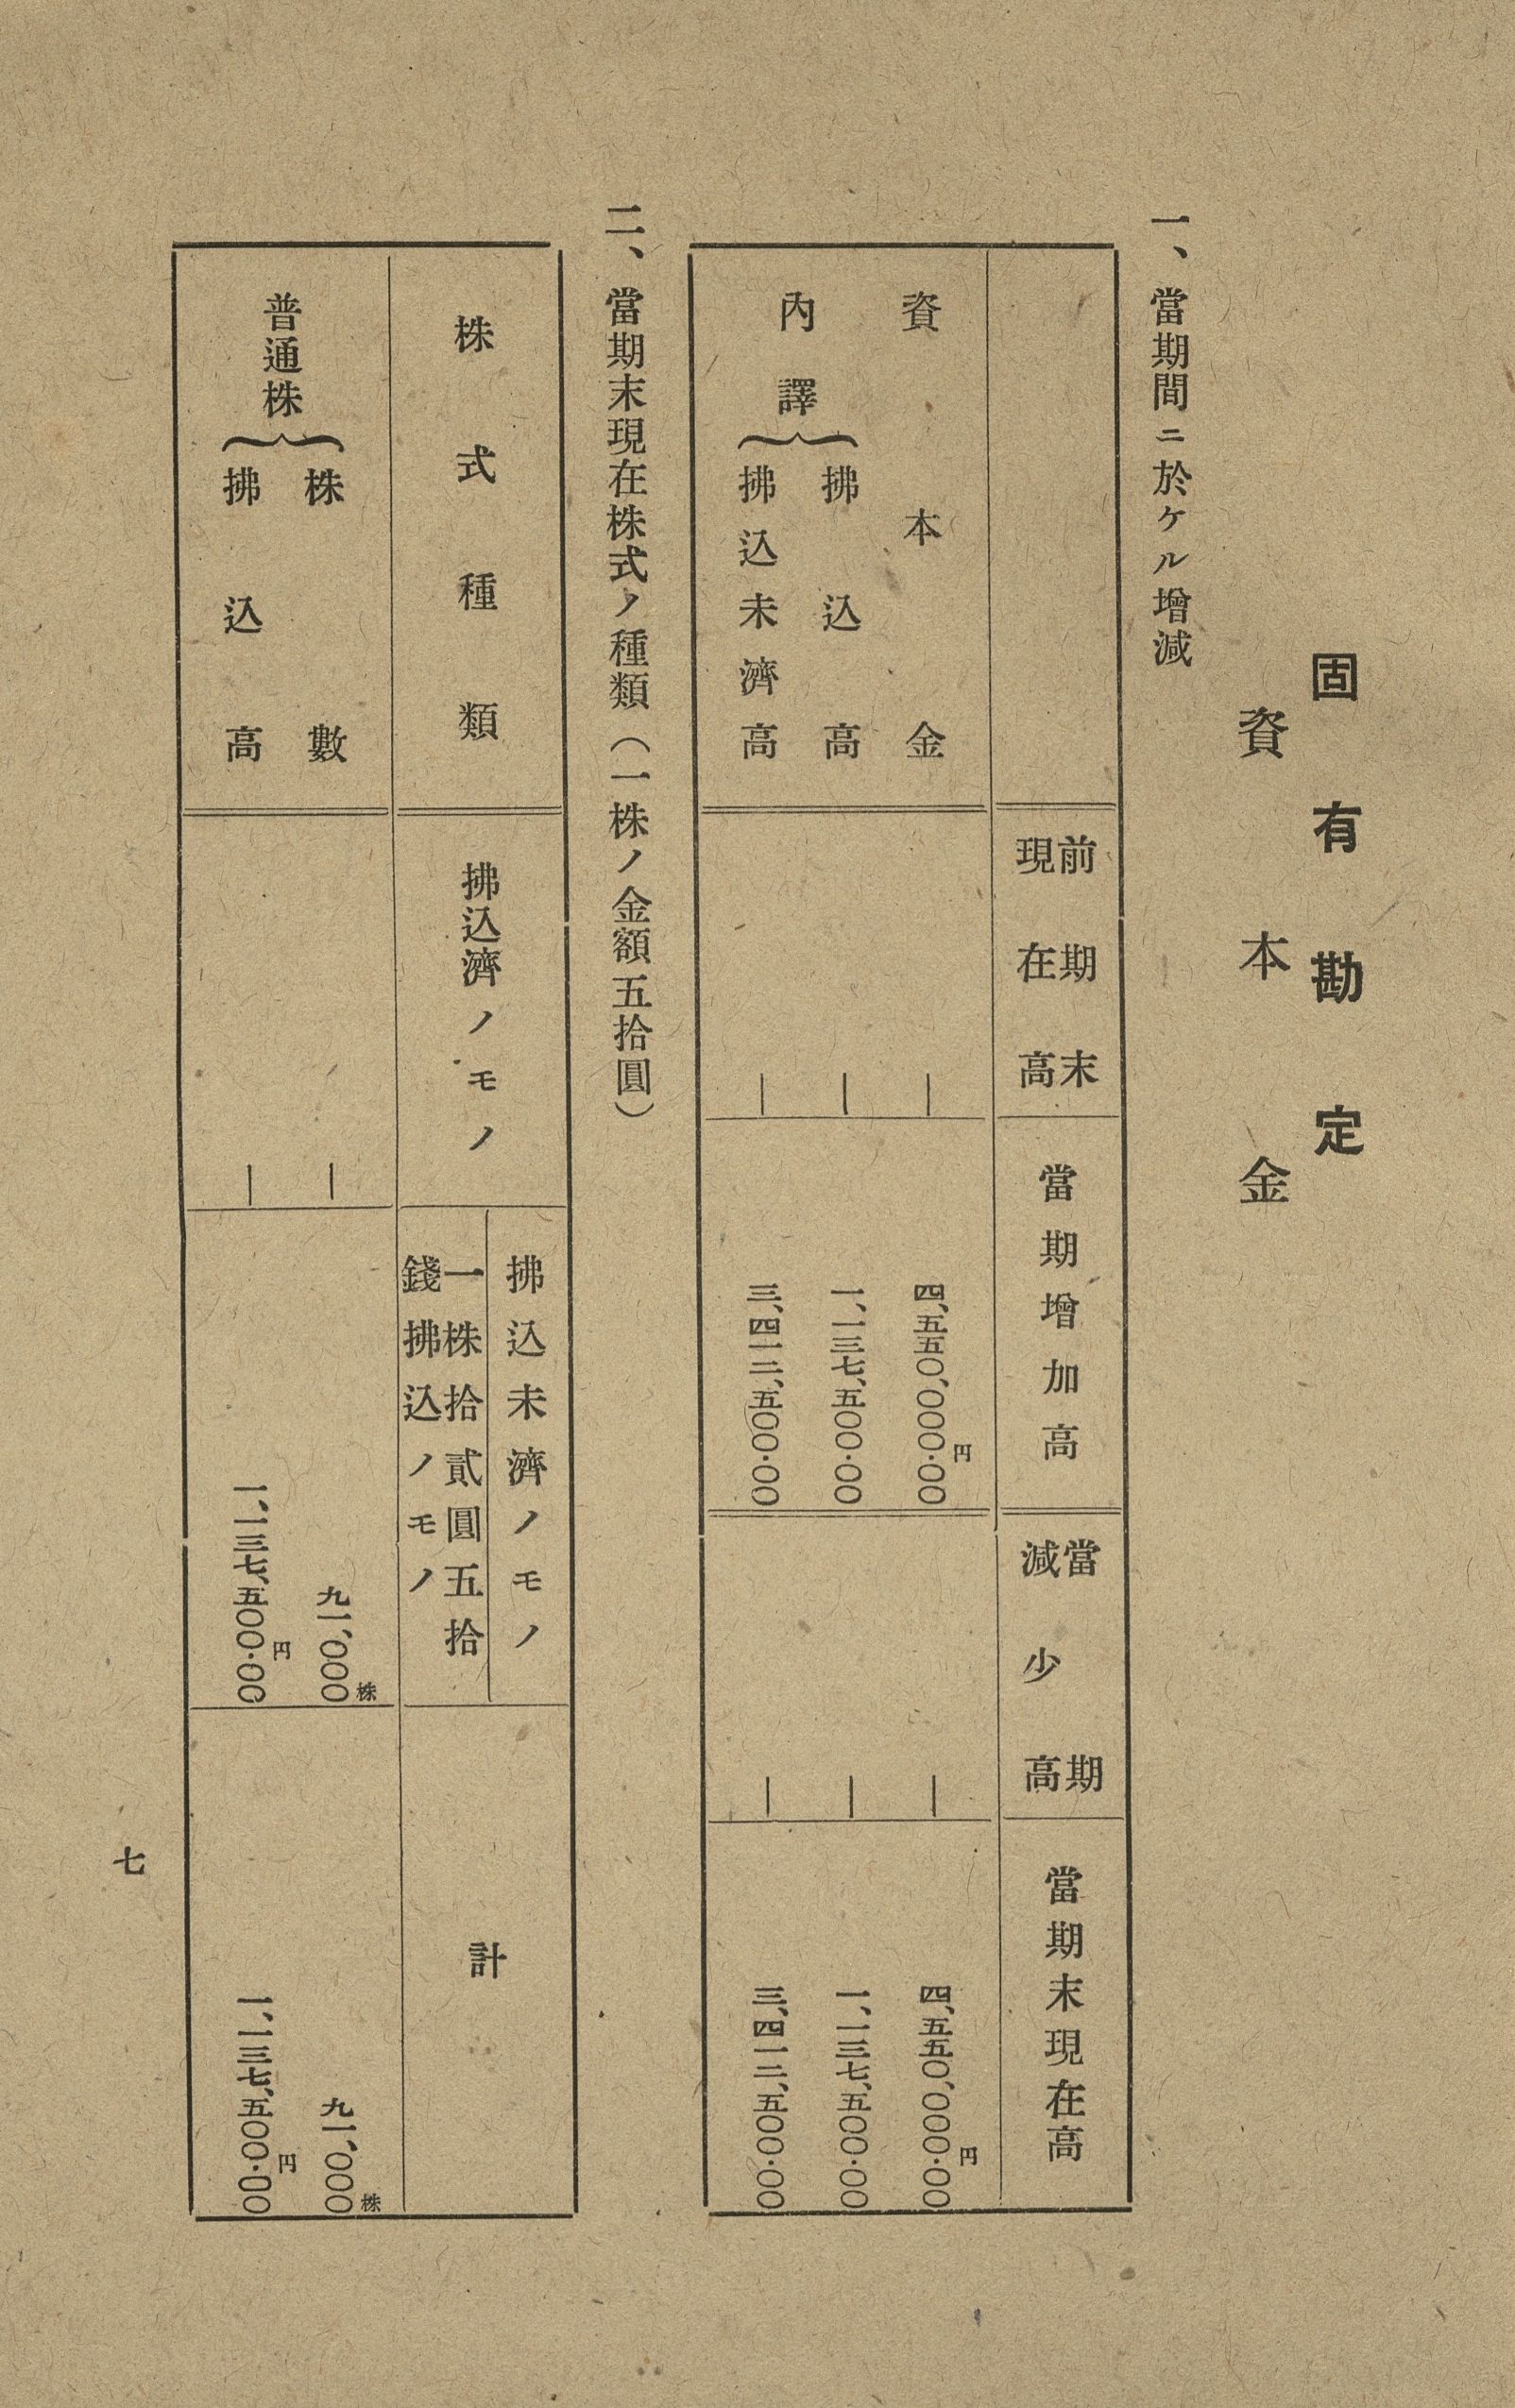 固有勘定
資本金
一、當期間ニ於ケル增減
前期末現在高
當期增加高
當期減少高
當期末現在高
資本金
―
四、五五〇、〇〇〇・〇〇円
―
四、五五〇、〇〇〇・〇〇円
內譯
拂込高
―
一、一三七、五〇〇・〇〇
―
一、一三七、五〇〇・〇〇
拂込未濟高
―
三、四一二、五〇〇・〇〇
―
三、四一二、五〇〇・〇〇
二、當期末現在株式ノ種類（一株ノ金額五拾圓）
株式種類
拂込濟ノモノ
拂込未濟ノモノ
一株拾貳圓五拾
錢拂込ノモノ
計
普通株
株數
―
九一、〇〇〇株
九一、〇〇〇株
拂込高
―
一、一三七、五〇〇・〇〇円
一、一三七、五〇〇・〇〇円
七